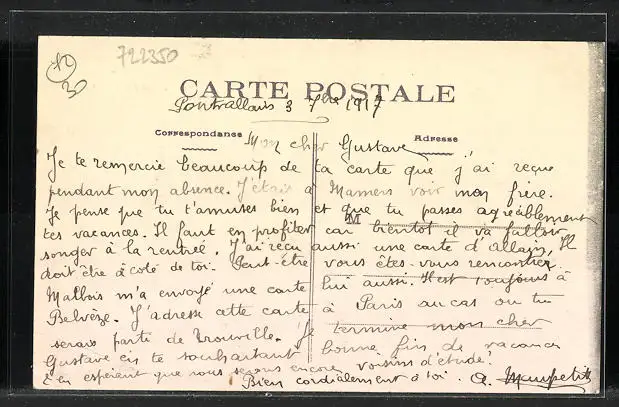 722350
12
30
CARTE POSTALE
Pontvallain 3 7bre 1917
Correspondance
Adresse
Mon cher Gustave
Je te remercie beaucoup de ta carte que j'ai reçue
pendant mon absence. J'étais à Mamers voir mon frère.
Je pense que tu t'amuses bien et que tu passes agréablement
M
tes vacances. Il faut en profiter car bientôt il va falloir
songer à la rentrée. J'ai reçu aussi une carte d'Allain, Il
doit être à côté de toi. Peut-être vous êtes-vous rencontrés.
Malbois m'a envoyé une carte lui aussi. Il est toujours à
Belvèze. J'adresse cette carte à Paris au cas ou tu
serais parti de Trouville. Je termine mon cher
Gustave en te souhaitant bonne fin de vacances
& en espérant que nous serons encore voisins d'étude!
Bien cordialement à toi. A.